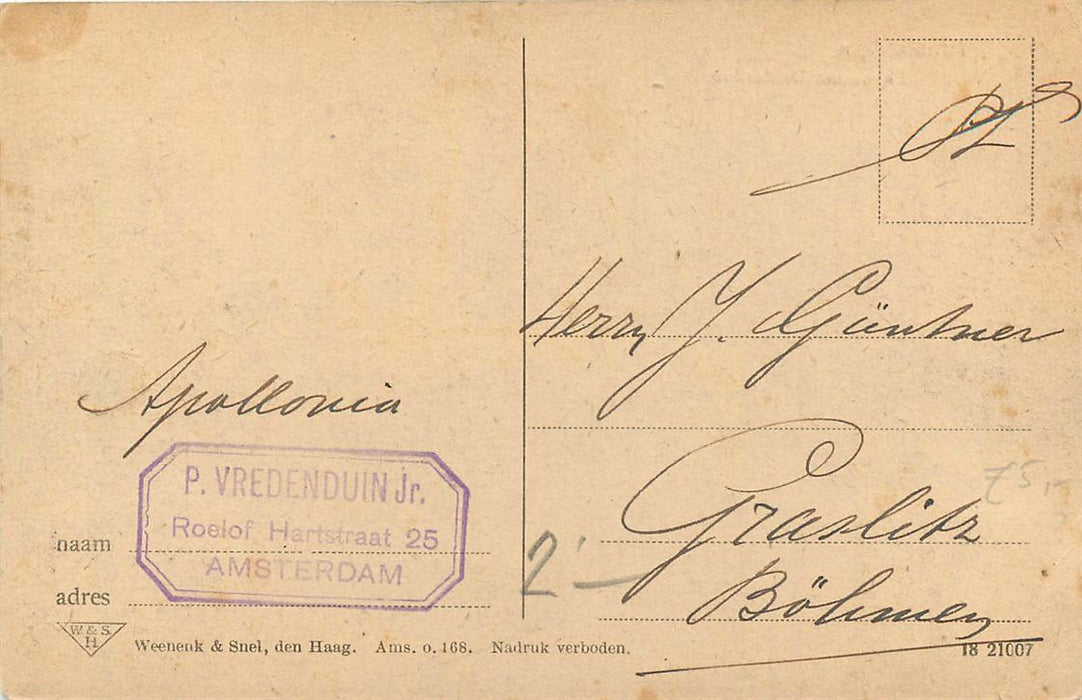 Apollonia
P. VREDENDUIN Jr.
Roelof Hartstraat 25
AMSTERDAM
naam
adres
W. & S.
H.
Weenenk & Snel, den Haag. Ams. o. 168. Nadruk verboden.
Herrn J. Güntner
Graslitz
Böhmen
2.-
18 21007